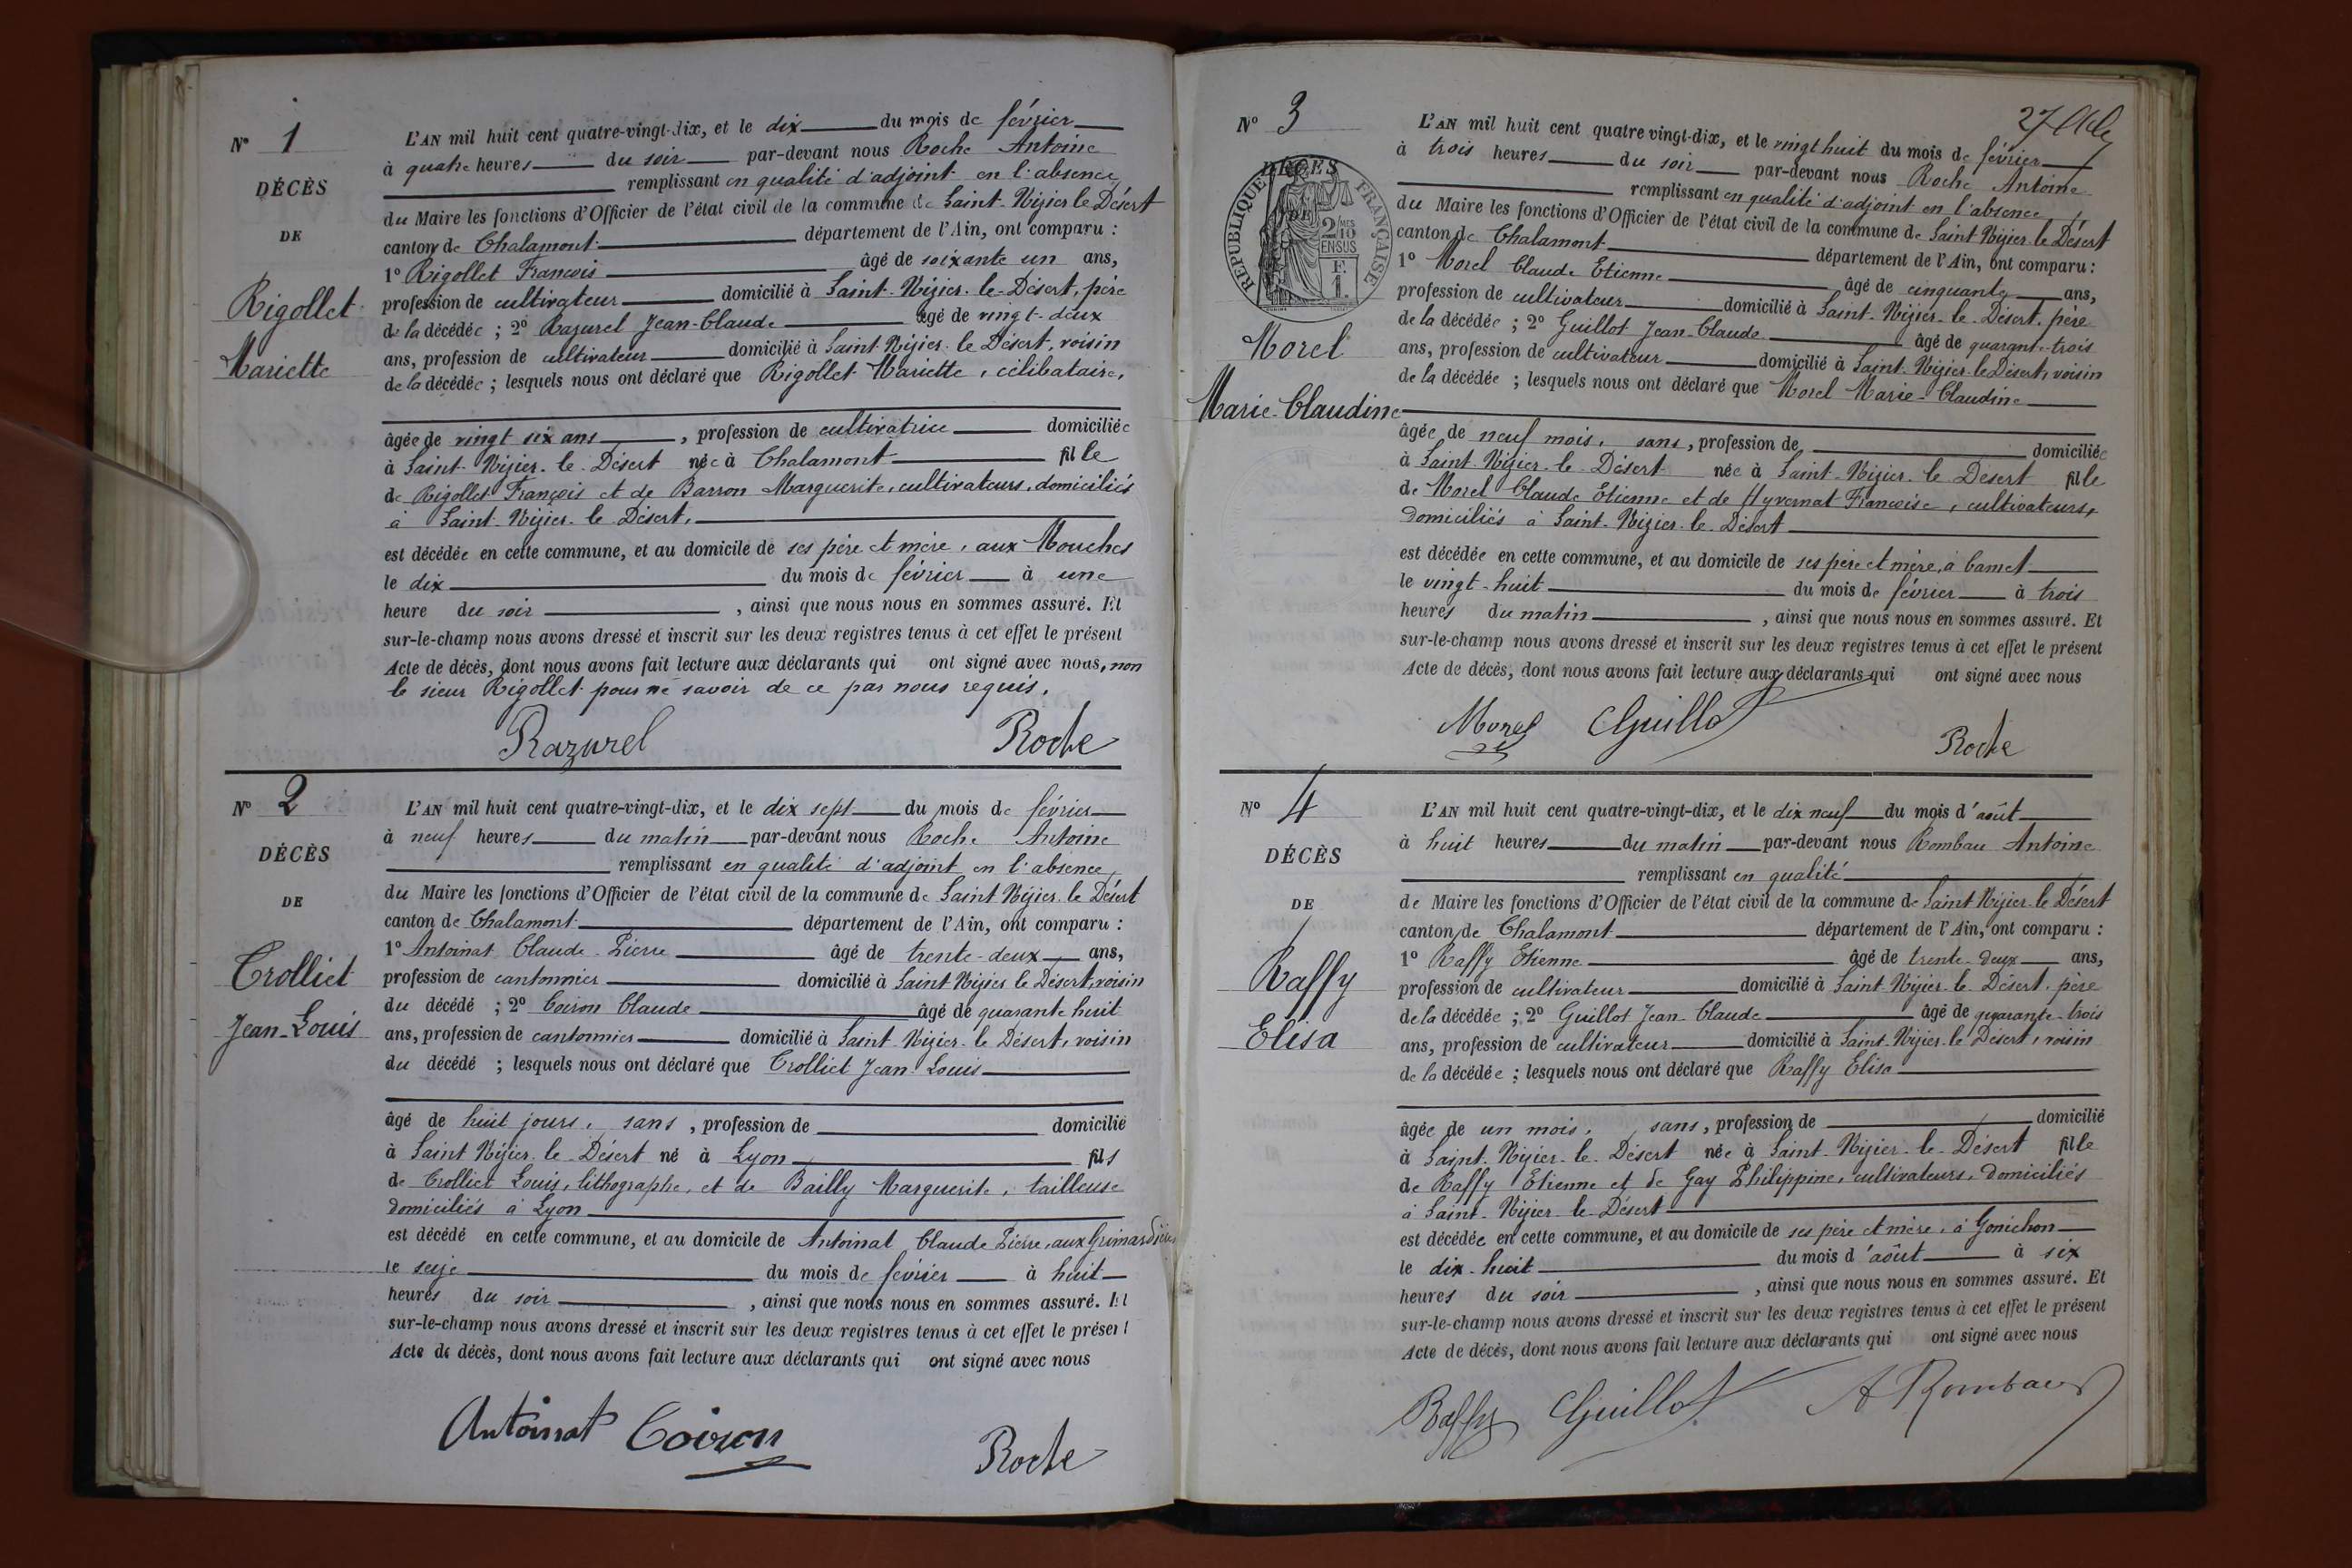 N° 1
DÉCÈS
DE
Rigollet
Mariette
L'AN mil huit cent quatre-vingt-dix, et le dix du mois de février
à quatre heures du soir par-devant nous Roche Antoine
remplissant en qualité d'adjoint en l'absence
du Maire les fonctions d'Officier de l'état civil de la commune de Saint-Nizier le Désert
canton de Chalamont département de l'Ain, ont comparu :
1° Rigollet François âgé de soixante un ans,
profession de cultivateur domicilié à Saint-Nizier-le-Désert, père
de la décédée ; 2° Razurel Jean-Claude âgé de vingt-deux
ans, profession de cultivateur domicilié à Saint-Nizier-le Désert, voisin
de la décédée ; lesquels nous ont déclaré que Rigollet Mariette, célibataire,
âgée de vingt six ans, profession de cultivatrice domiciliée
à Saint-Nizier-le-Désert née à Chalamont fille
de Rigollet François et de Barron Marguerite, cultivateurs, domiciliés
à Saint-Nizier-le-Désert,
est décédée en cette commune, et au domicile de ses père et mère, aux Mouches
le dix du mois de février à une
heure du soir, ainsi que nous nous en sommes assuré. Et
sur-le-champ nous avons dressé et inscrit sur les deux registres tenus à cet effet le présent
Acte de décès, dont nous avons fait lecture aux déclarants qui ont signé avec nous, non
le sieur Rigollet pour ne savoir de ce par nous requis.
Razurel Roche
N° 2
DÉCÈS
DE
Trolliet
Jean-Louis
L'AN mil huit cent quatre-vingt-dix, et le dix sept du mois de février
à neuf heures du matin par-devant nous Roche Antoine
remplissant en qualité d'adjoint en l'absence,
du Maire les fonctions d'Officier de l'état civil de la commune de Saint-Nizier-le Désert
canton de Chalamont département de l'Ain, ont comparu :
1° Antoinat Claude-Pierre âgé de trente-deux ans,
profession de cantonnier domicilié à Saint Nizier le Désert, voisin
du décédé ; 2° Coiron Claude âgé de quarante huit
ans, profession de cantonnier domicilié à Saint-Nizier-le Désert, voisin
du décédé ; lesquels nous ont déclaré que Trolliet Jean-Louis
âgé de huit jours, sans, profession de domicilié
à Saint Nizier-le-Désert né à Lyon fils
de Trolliet Louis, lithographe, et de Bailly Marguerite, tailleuse
domiciliés à Lyon
est décédé en cette commune, et au domicile de Antoinat Claude Pierre, aux Grimardières
le seize du mois de février à huit
heures du soir, ainsi que nous nous en sommes assuré. Et
sur-le-champ nous avons dressé et inscrit sur les deux registres tenus à cet effet le présent
Acte de décès, dont nous avons fait lecture aux déclarants qui ont signé avec nous
Antoinat Coiron Roche
N° 3
DÉCÈS
DE
RÉPUBLIQUE FRANÇAISE
2/10 EN SUS
F. 1.
Morel
Marie-Claudine
L'AN mil huit cent quatre vingt-dix, et le vingt huit du mois de février
à trois heures du soir par-devant nous Roche Antoine
remplissant en qualité d'adjoint en l'absence,
du Maire les fonctions d'Officier de l'état civil de la commune de Saint Nizier-le-Désert
canton de Chalamont département de l'Ain, ont comparu :
1° Morel Claude Etienne âgé de cinquante ans,
profession de cultivateur domicilié à Saint-Nizier-le-Désert, père
de la décédée ; 2° Guillot Jean-Claude âgé de quarante-trois
ans, profession de cultivateur domicilié à Saint-Nizier-le Désert, voisin
de la décédée ; lesquels nous ont déclaré que Morel Marie-Claudine
âgée de neuf mois, sans, profession de domiciliée
à Saint-Nizier-le Désert née à Saint-Nizier-le Désert fille
de Morel Claude Etienne et de Hyvernat Françoise, cultivateurs,
domiciliés à Saint-Nizier-le-Désert
est décédée en cette commune, et au domicile de ses père et mère, à Camet
le vingt-huit du mois de février à trois
heures du matin, ainsi que nous nous en sommes assuré. Et
sur-le-champ nous avons dressé et inscrit sur les deux registres tenus à cet effet le présent
Acte de décès, dont nous avons fait lecture aux déclarants qui ont signé avec nous
Morel Guillot Roche
N° 4
DÉCÈS
DE
Raffy
Elisa
L'AN mil huit cent quatre-vingt-dix, et le dix neuf du mois d'août
à huit heures du matin par-devant nous Rombau Antoine
remplissant en qualité
de Maire les fonctions d'Officier de l'état civil de la commune de Saint Nizier-le Désert
canton de Chalamont département de l'Ain, ont comparu :
1° Raffy Etienne âgé de trente-deux ans,
profession de cultivateur domicilié à Saint-Nizier-le-Désert, père
de la décédée ; 2° Guillot Jean-Claude âgé de quarante-trois
ans, profession de cultivateur domicilié à Saint-Nizier-le Désert, voisin
de la décédée ; lesquels nous ont déclaré que Raffy Elisa
âgée de un mois, sans, profession de domicilié
à Saint-Nizier-le-Désert née à Saint-Nizier-le-Désert fille
de Raffy Etienne et de Gay Philippine, cultivateurs, domiciliés
à Saint-Nizier-le-Désert
est décédée en cette commune, et au domicile de ses père et mère, à Gonichon
le dix-huit du mois d'août à six
heures du soir, ainsi que nous nous en sommes assuré. Et
sur-le-champ nous avons dressé et inscrit sur les deux registres tenus à cet effet le présent
Acte de décès, dont nous avons fait lecture aux déclarants qui ont signé avec nous
Raffy Guillot A Rombau